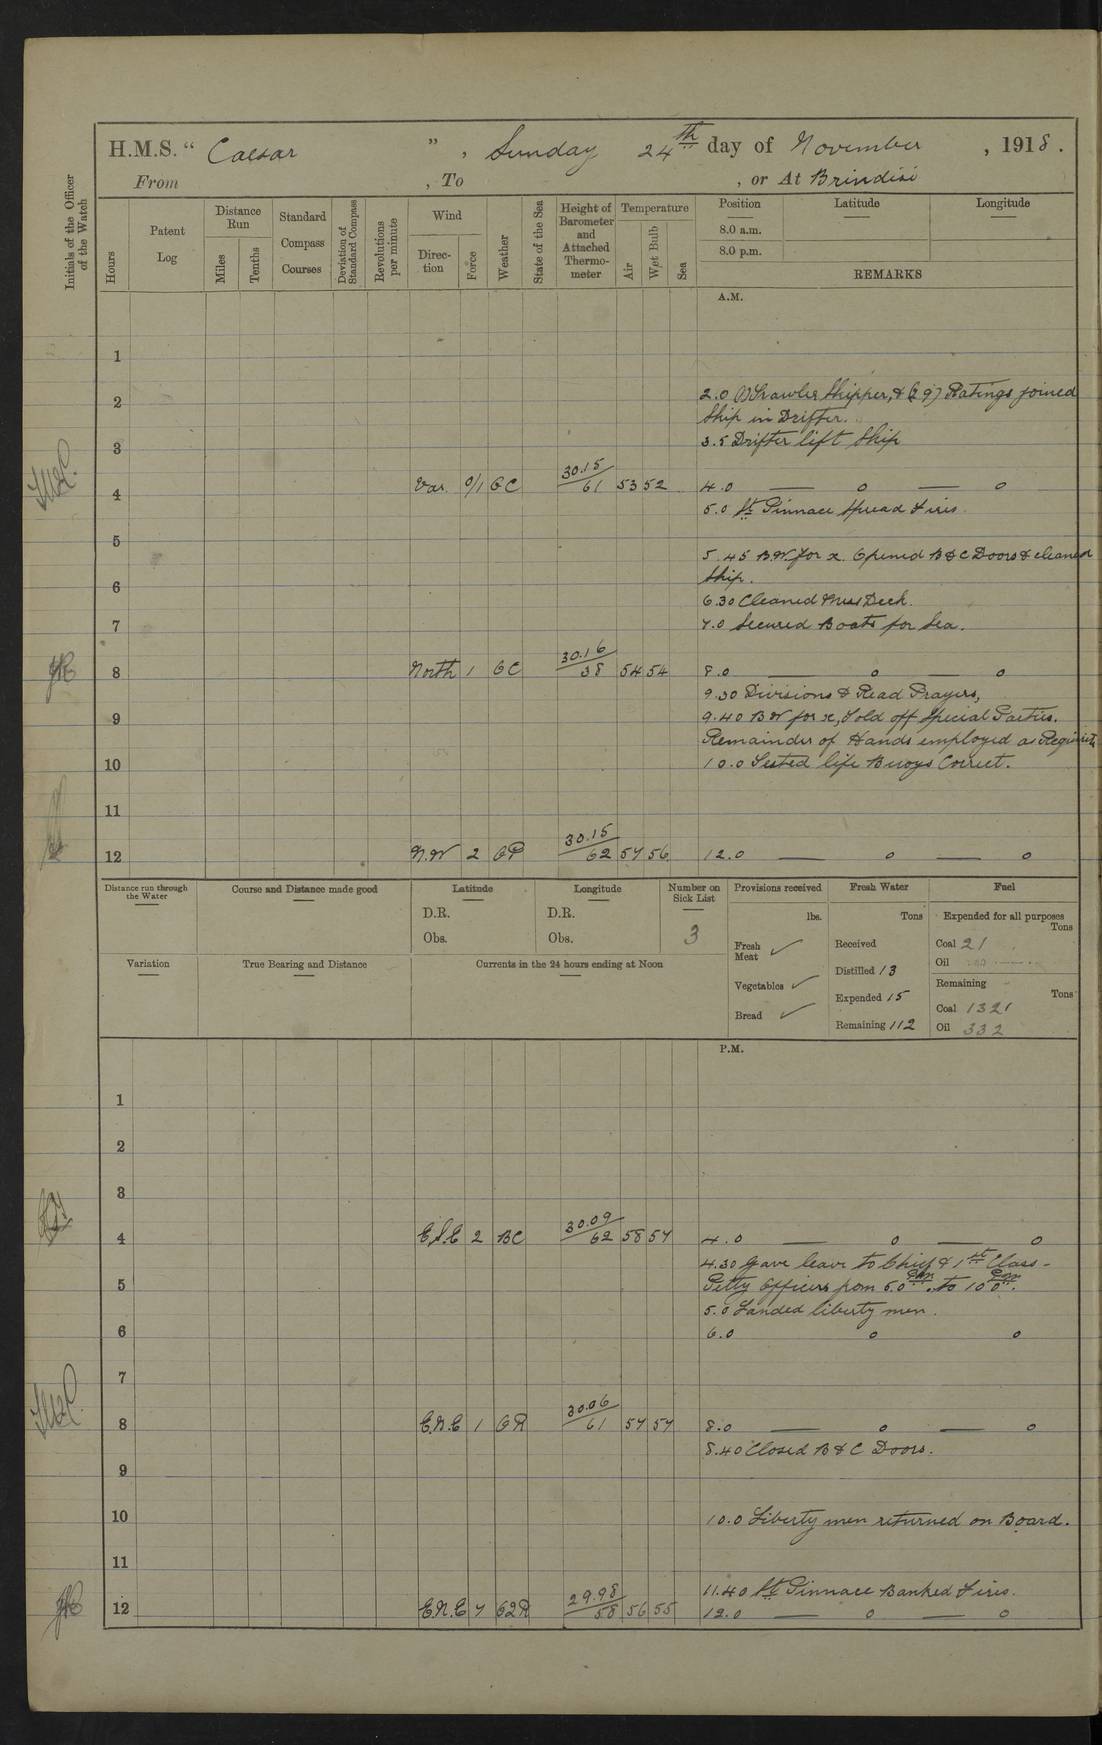 H.M.S. “ Caesar ” , Sunday 24th day of November , 1918 .
From , To , or At Brindisi
Initials of the Officer of the Watch
Hours
Patent Log
Distance Run
Miles
Tenths
Standard Compass Courses
Deviation of Standard Compass
Revolutions per minute
Wind
Direc-tion
Force
Weather
State of the Sea
Height of Barometer and Attached Thermo-meter
Temperature
Air
Wet Bulb
Sea
Position
Latitude
Longitude
8.0 a.m.
8.0 p.m.
REMARKS
A.M.
1
2 2.0 (1) Trawler Skipper, & (29) Ratings joined
Ship in Drifter.
3 3.5 Drifter left Ship
4 Var. 0/1 OC 30.15/61 53 52 4.0 — o — o
5.0 St Pinnace Spread Fires.
5 5.45 B.W. for x. Opened B & C Doors & cleaned
Ship.
6 6.30 Cleaned Mess Deck.
7 7.0 Secured Boats for Sea.
8 North 1 OC 30.16/58 54 54 8.0 o — o
9.30 Divisions & Read Prayers,
9 9.40 B W for x, Told off Special Parties.
Remainder of Hands employed as Requisite
10 10.0 Tested life Buoys Correct.
11
12 N.W 2 OP 30.15/62 57 56 12.0 — o — o
Distance run through the Water
Course and Distance made good
Latitude
D.R.
Obs.
Longitude
D.R.
Obs.
Number on Sick List
3
Provisions received
lbs.
Fresh Meat ✓
Vegetables ✓
Bread ✓
Fresh Water
Tons
Received
Distilled 13
Expended 15
Remaining 112
Fuel
Expended for all purposes
Tons
Coal 21
Oil
Remaining
Tons
Coal 1321
Oil 332
Variation
True Bearing and Distance
Currents in the 24 hours ending at Noon
P.M.
1
2
3
4 E.S.E 2 BC 30.09/62 58 57 4.0 — o — o
4.30 Gave leave to Chief & 1st Class -
5 Petty Officers from 5.0 pm. to 10 0 pm.
5.0 Landed liberty men.
6 6.0 o o
7
8 E.N.E 1 OR 30.06/61 57 57 8.0 — o — o
8.40 Closed B & C Doors.
9
10 10.0 Liberty men returned on Board.
11
11.40 St Pinnace Banked Fires.
12 E.N.E 7 62R 29.98/58 56 55 12.0 — o — o